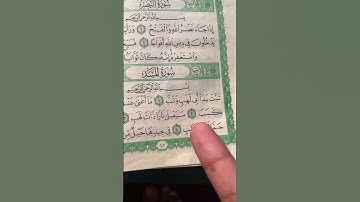 سُورَةُ النَّصْرِ
بِسْمِ اللَّهِ الرَّحْمَٰنِ الرَّحِيمِ
إِذَا جَاءَ نَصْرُ اللَّهِ وَالْفَتْحُ ١
يَدْخُلُونَ فِي دِينِ اللَّهِ أَفْوَاجًا ٢
وَاسْتَغْفِرْهُ إِنَّهُ كَانَ تَوَّابًا
سُورَةُ الْمَسَدِ
بِسْمِ اللَّهِ الرَّحْمَٰنِ الرَّحِيمِ
تَبَّتْ يَدَا أَبِي لَهَبٍ وَتَبَّ ١ مَا أَغْنَىٰ
كَسَبَ ٢ سَيَصْلَىٰ نَارًا ذَاتَ لَهَبٍ
فِي جِيدِهَا حَبْلٌ مِنْ